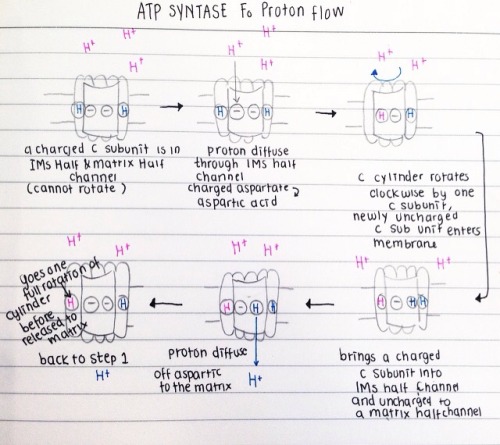 ATP SYNTASE Fo Proton flow
H+
H+
H+
H - - H
a charged C subunit is in
IMS Half & matrix Half
channel
(cannot rotate)
H+
H+
H+
H - - H
proton diffuse
through IMS half
channel
charged aspartate →
aspartic acid
H+
H+
H - H
C cylinder rotates
clockwise by one
C subunit,
newly uncharged
C sub unit enters
membrane
H+
H+
H - H H
brings a charged
C subunit into
IMS half Channel
and uncharged to
a matrix half channel
H+
H+
H - H H
proton diffuse
off aspartic
to the matrix
H+
H+
H+
goes one
full rotation of
cylinder
before
released to
matrix
H - - H
back to step 1
H+